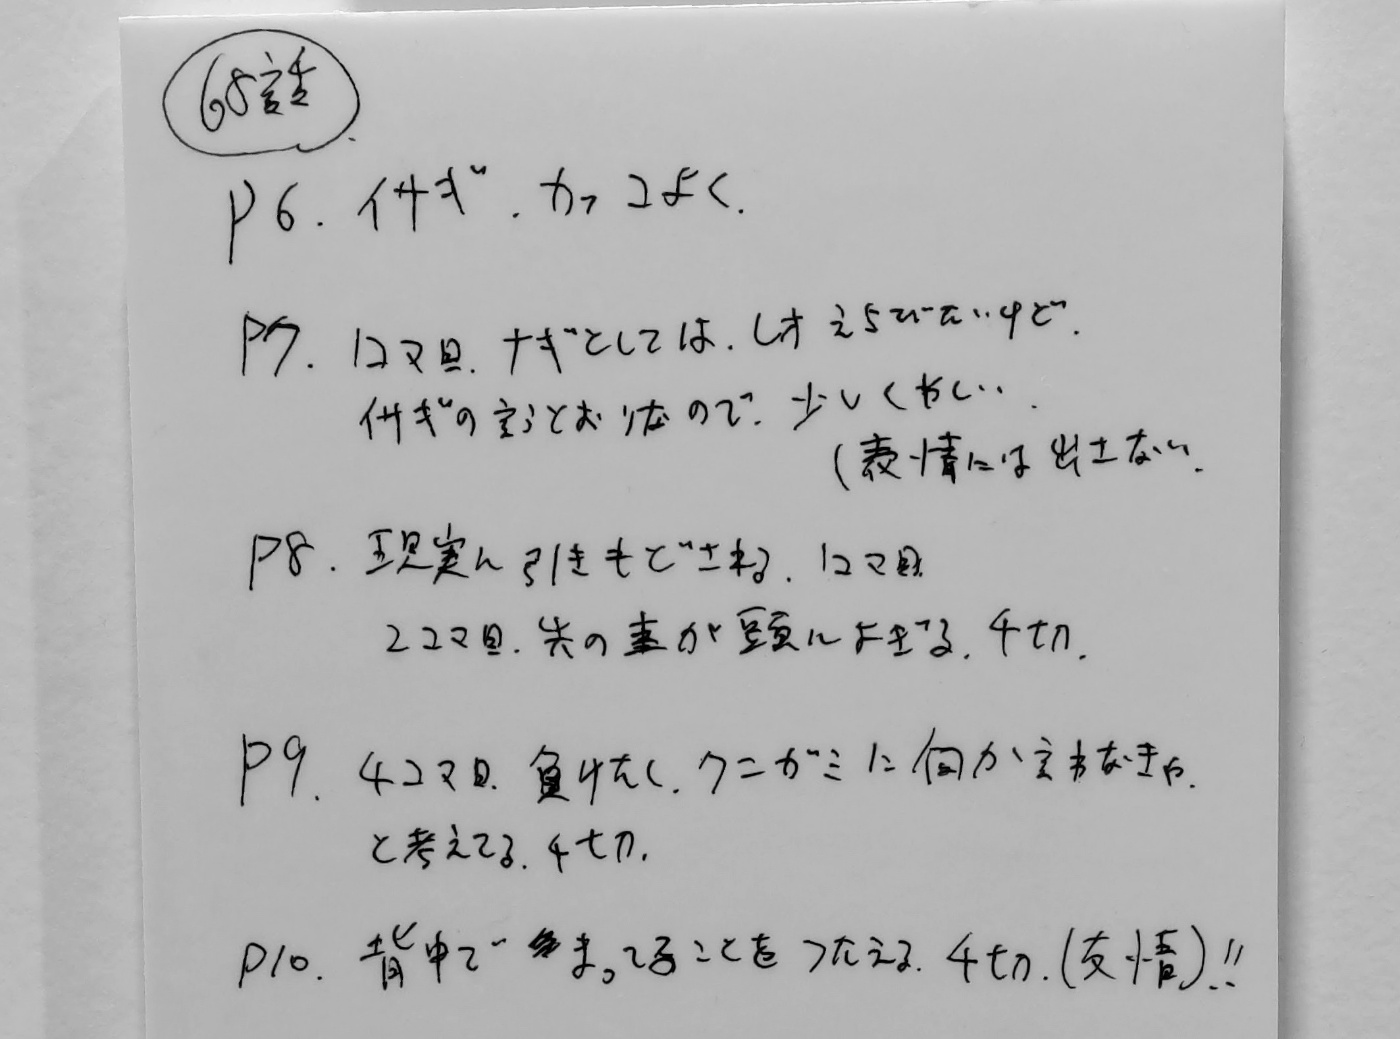 68話
P6. イサギ.カッコよく.
P7. 1コマ目.ナギとしては.レオえらびたいけど.
イサギの言うとおりなので.少しくやしい.
(表情には出さない.
P8. 現実に引きもどされる.1コマ目
2コマ目.先の事が頭によぎる.千切.
P9. 4コマ目.負けたく.クニガミに何か言わなきゃ.
と考えてる.千切.
P10. 背中でまってることをつたえる.千切.(友情)!!